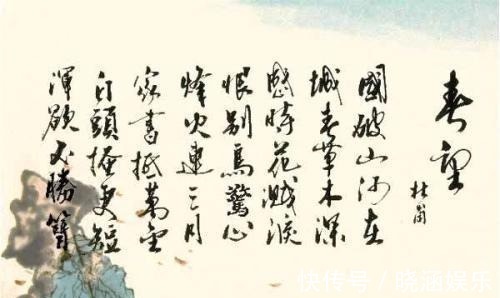 春望
杜甫
國破山河在
城春草木深
感時花濺淚
恨别鳥驚心
烽火連三月
家書抵萬金
白頭搔更短
渾欲不勝簪
快传号 / 晓涵娱乐